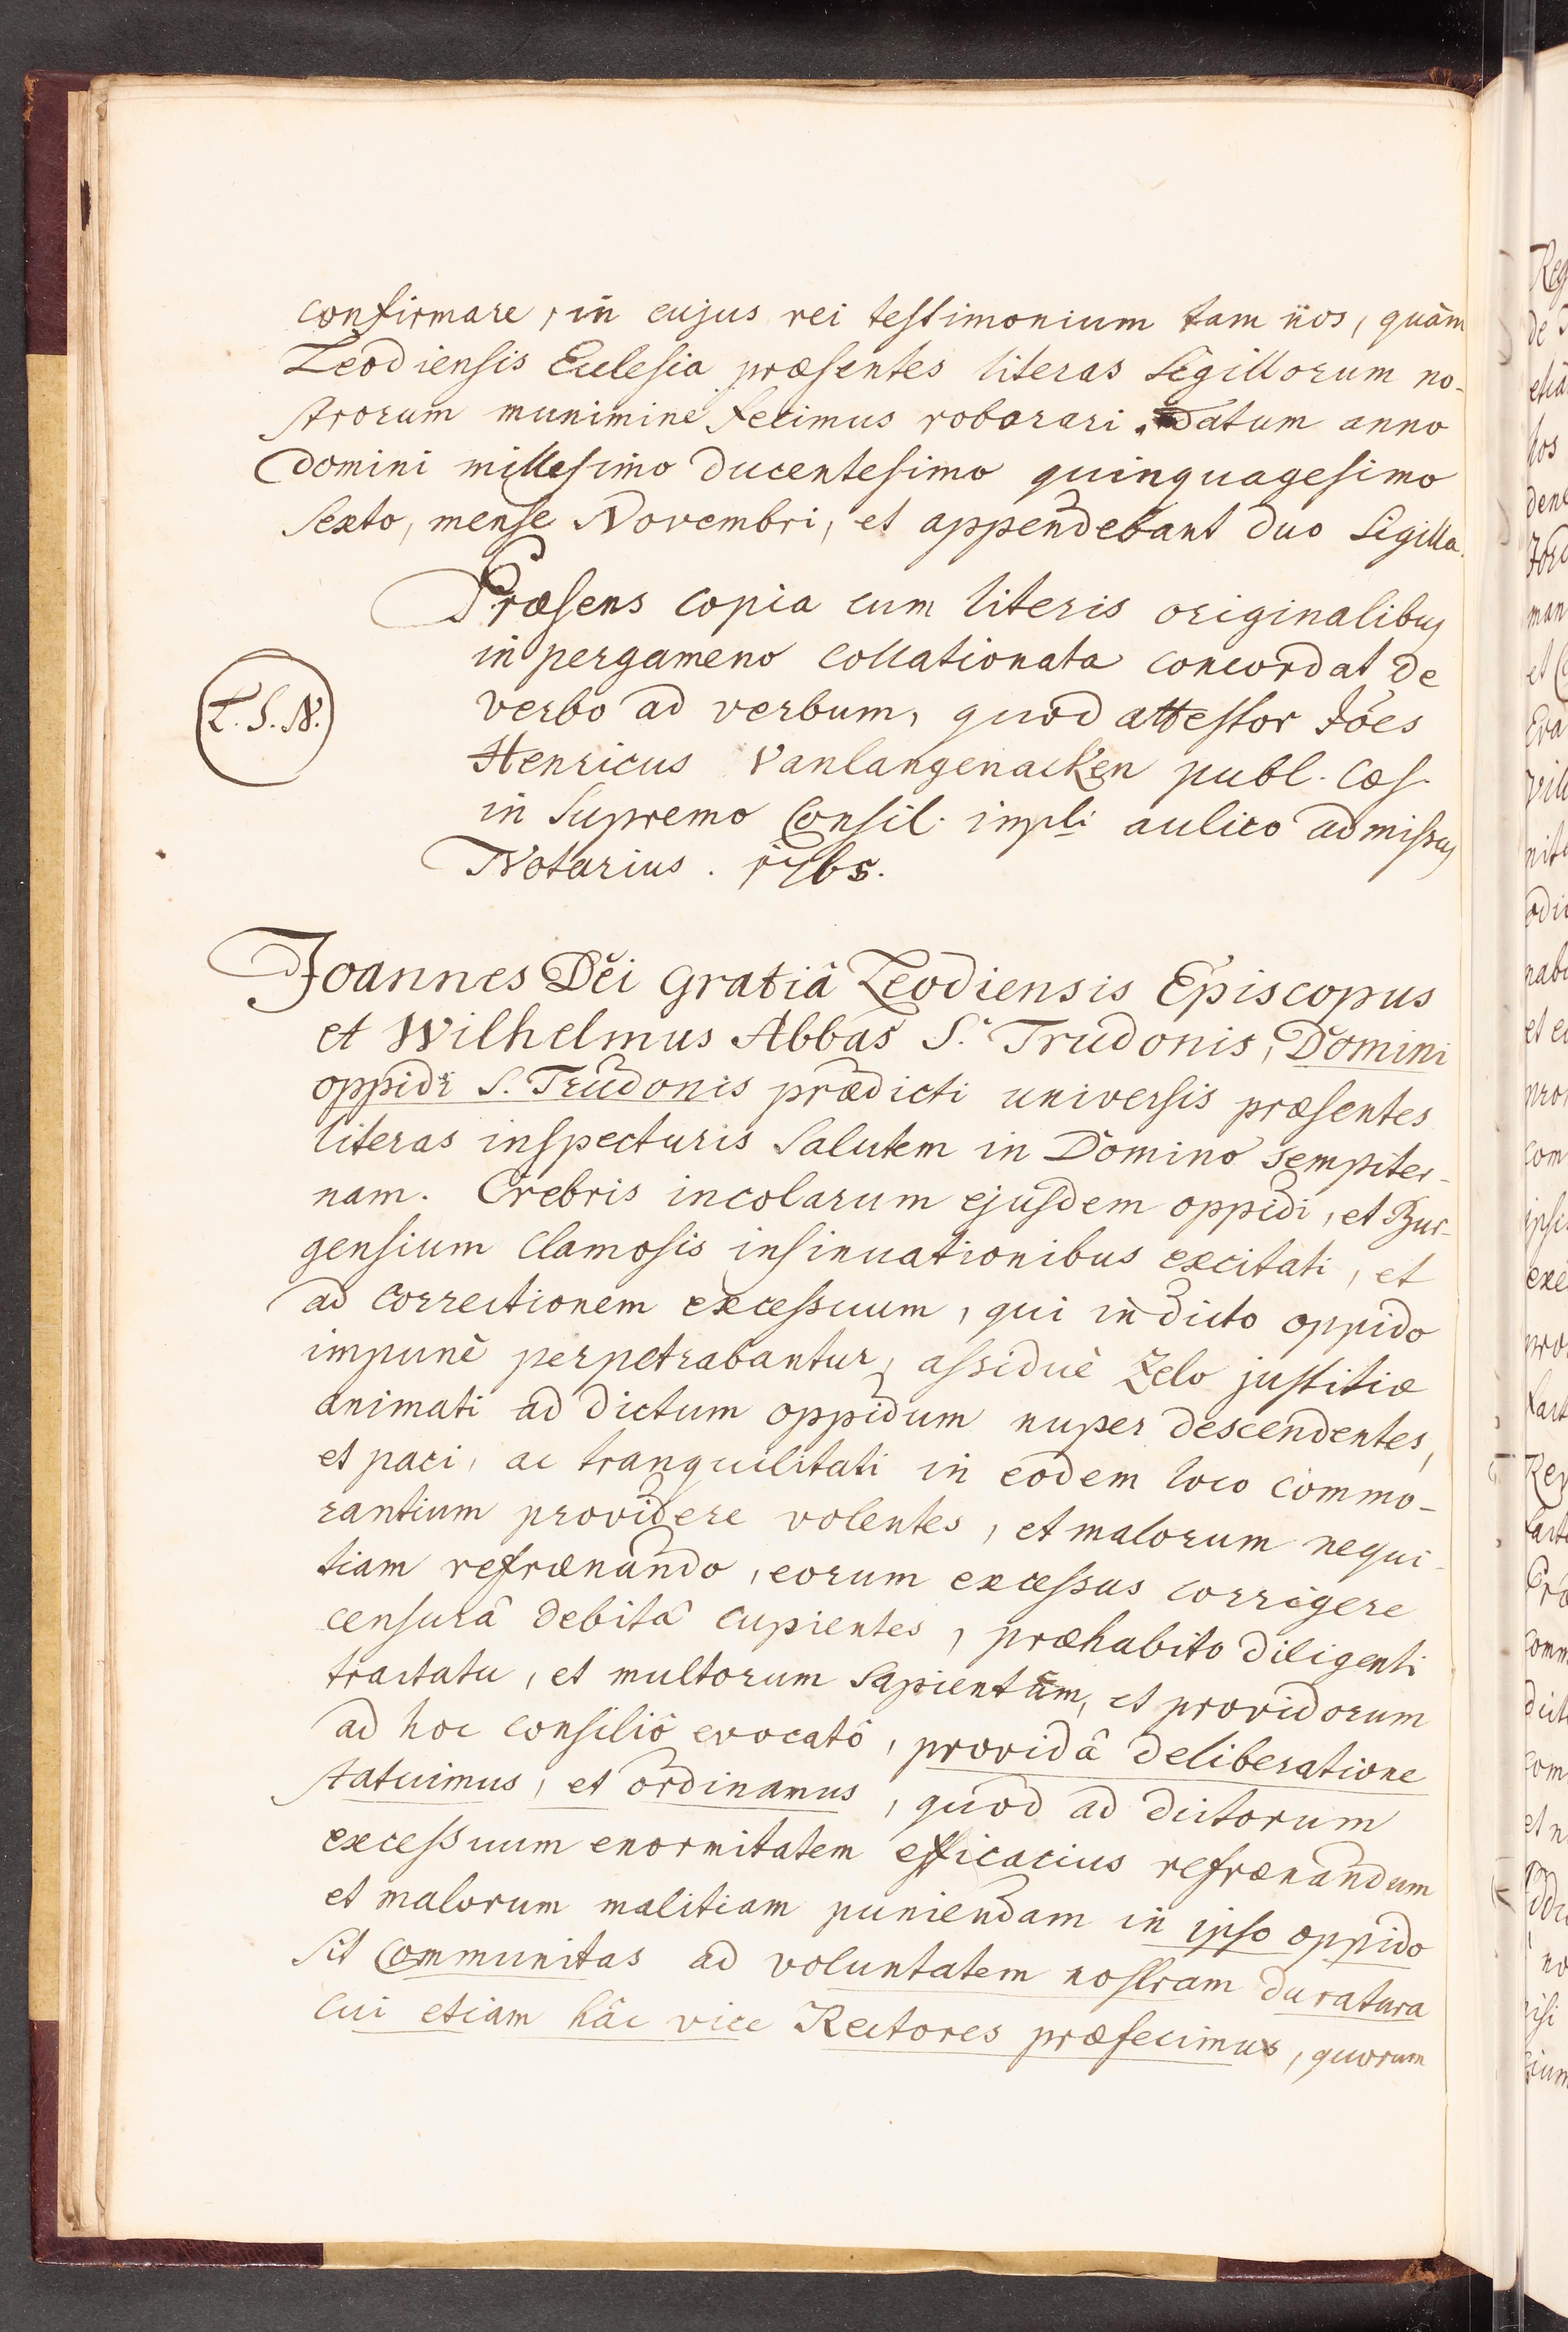 confirmare, in cujus rei testimonium tam nos, quàm
Leodiensis Ecclesia præsentes literas Sigillorum no-
strorum munimine fecimus roborari. Datum anno
Domini millesimo ducentesimo quinquagesimo
Sexto, mense Novembri, et appendebant duo Sigilla.
Præsens copia cum literis originalibus
in pergameno collationata concordat de
verbo ad verbum, quod attestor Jóes
L. S. N.
Henricus Vanlangenacken publ. Cæs.
in Supremo Consil. impli aulico admissus
Notarius. 1765.
Joannes Dei gratiâ Leodiensis Episcopus
et Wilhelmus Abbas S.ti Trudonis, Domini
oppidi S. Trudonis prædicti universis præsentes
literas inspecturis Salutem in Domino sempiter-
nam. Crebris incolarum ejusdem oppidi, et Bur-
gensium clamosis insinuationibus excitati, et
ad correctionem excessuum, qui in dicto oppido
impunè perpetrabantur, assiduè Zelo justitiæ
animati ad dictum oppidum nuper descendentes,
et paci, ac tranquilitati in eodem loco commo-
rantium providere volentes, et malorum nequi-
tiam refrænando, eorum excessus corrigere
censurâ debitâ cupientes, præhabito diligenti
tractatu, et multorum Sapientum, et providorum
ad hoc consiliô evocatô, providâ deliberatione
statuimus, et ordinamus, quod ad dictorum
excessuum enormitatem efficacius refrænandum
et malorum malitiam puniendam in ipso oppido
sit Communitas ad voluntatem nostram duratura
cui etiam hâc vice Rectores præfecimus, quorum